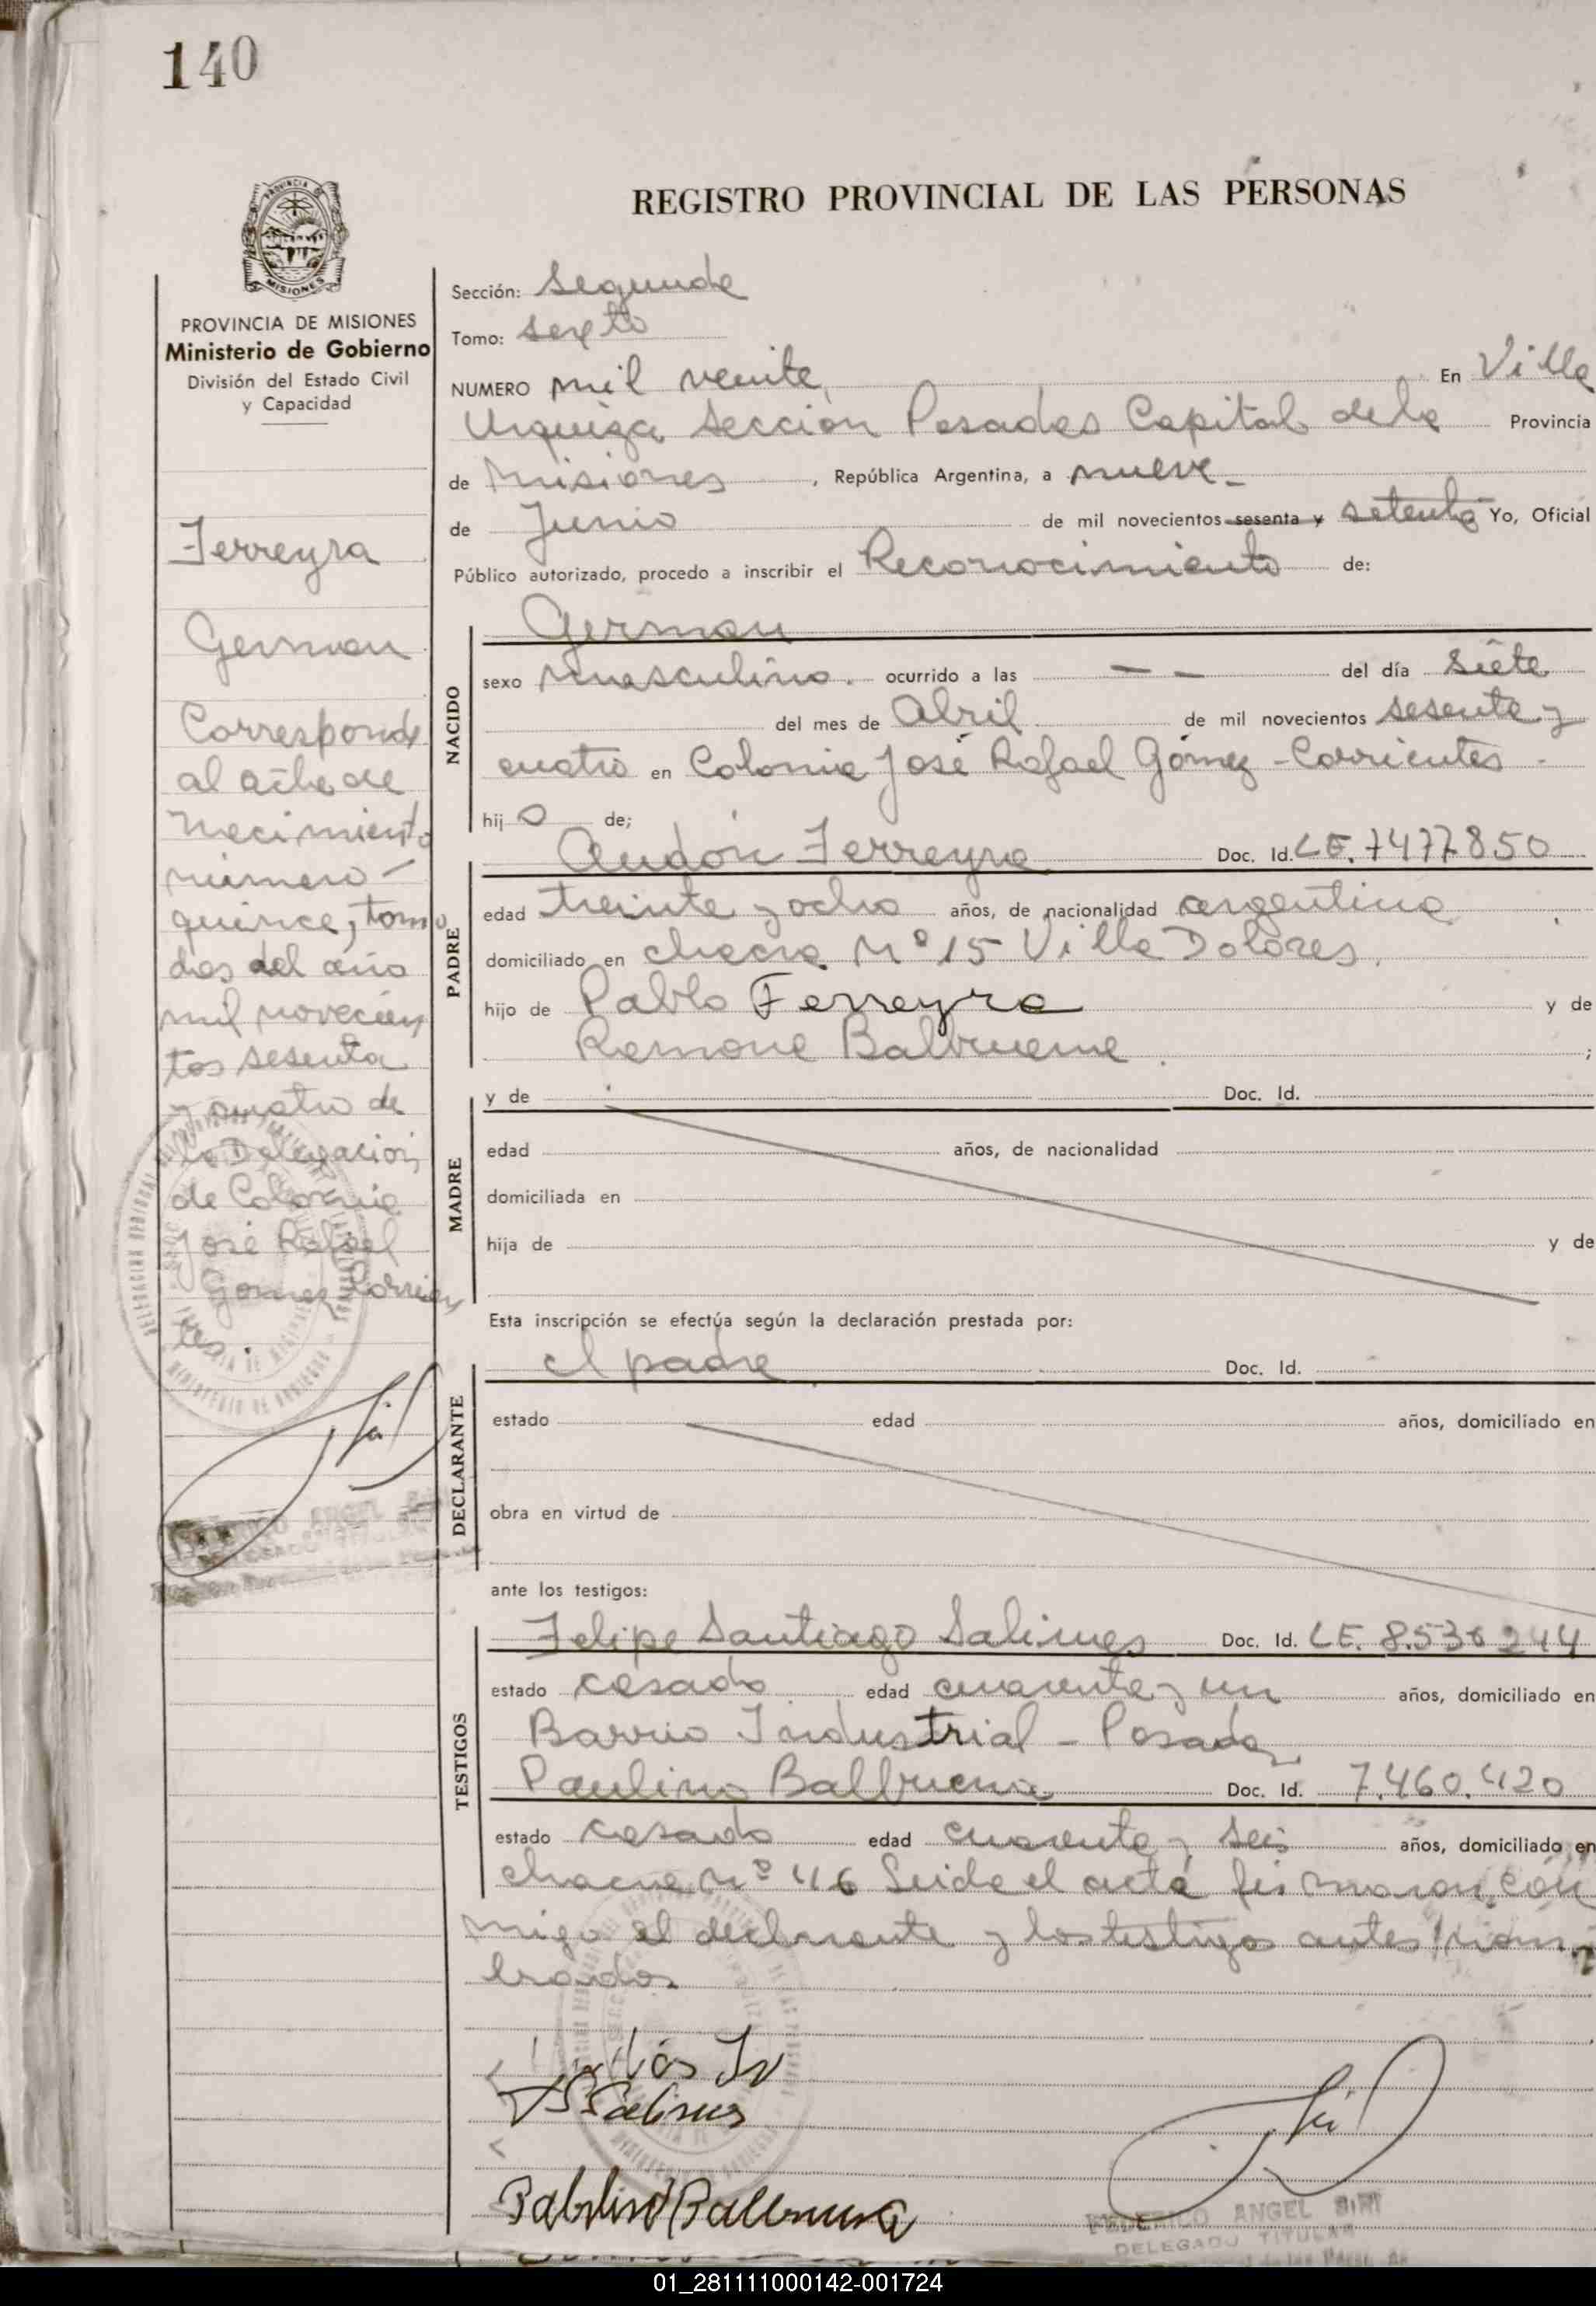 140
REGISTRO PROVINCIAL DE LAS PERSONAS
PROVINCIA DE MISIONES
Ministerio de Gobierno
División del Estado Civil
y Capacidad
Ferreyra
German
Corresponde
al acta de
Nacimiento
número -
quince, tomo
dos del año
mil novecien
tos sesenta
y cuatro de
la Delegación
de Colonia
José Rafael
Gomez Corrien
tes.
Sección: Segunda
Tomo: sexto
NUMERO mil veinte En Villa
Urquiza Sección Posadas Capital de la Provincia
de Misiones, República Argentina, a nueve -
de Junio de mil novecientos sesenta y setenta Yo, Oficial
Público autorizado, procedo a inscribir el Reconocimiento de:
NACIDO
German
sexo masculino. ocurrido a las — — del día Siete
del mes de Abril de mil novecientos sesenta y
cuatro en Colonia José Rafael Gómez - Corrientes -
hij o de;
PADRE
Audón Ferreyra Doc. Id. LE. 7477850
edad treinta y ocho años, de nacionalidad argentina
domiciliado en chacra Nº 15 Villa Dolores.
hijo de Pablo Ferreyra y de
Ramona Balbuena ;
MADRE
y de Doc. Id.
edad años, de nacionalidad
domiciliada en
hija de y de
Esta inscripción se efectúa según la declaración prestada por:
DECLARANTE
el padre Doc. Id.
estado edad años, domiciliado en
obra en virtud de
ante los testigos:
TESTIGOS
Felipe Santiago Salinas Doc. Id. LE. 8.536244
estado casado edad cuarenta y un años, domiciliado en
Barrio Industrial - Posadas
Paulino Balbuena Doc. Id. 7.460.420
estado casado edad cuarenta y seis años, domiciliado en
chacra Nº 46 Leida el acta firmaron con
migo el declarante y los testigos antes nom
brados
FS Salinas
Balbuena
FEDERICO ANGEL SIRI
DELEGADO TITULAR
01_281111000142-001724